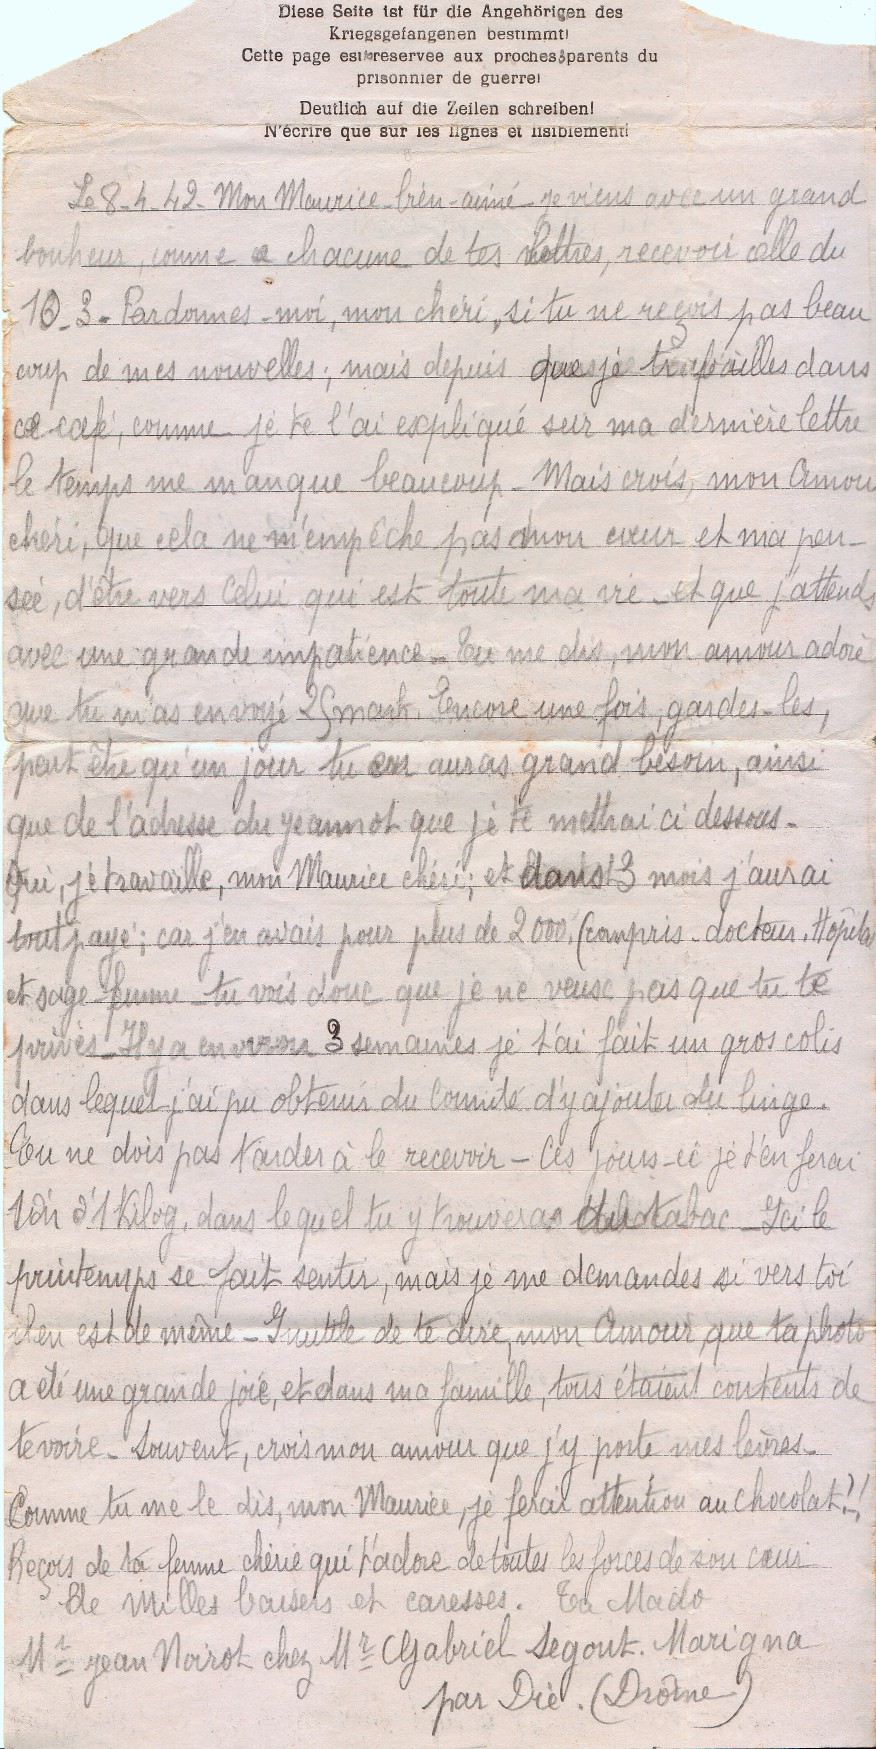 Diese Seite ist für die Angehörigen des
Kriegsgefangenen bestimmt!
Cette page est reservee aux proches parents du
prisonnier de guerre!
Deutlich auf die Zeilen schreiben!
N'écrire que sur les lignes et lisiblement!
Le 8-4-42- Mon Maurice bien-aimé je viens avec un grand
bonheur, comme a chacune de tes lettres, recevoir celle du
10-3- Pardonnes-moi, mon chéri, si tu ne reçois pas beau
coup de mes nouvelles; mais depuis que je travailles dans
ce café, comme je te l'ai expliqué sur ma dernière lettre
le temps me manque beaucoup- Mais crois, mon Amour
chéri, que cela ne m'empêche pas mon cœur et ma pen-
seé, d'être vers Celui qui est toute ma vie- et que j'attends
avec une grande impatience- Tu me dis, mon amour adoré
que tu m'as envoyé 25 mark. Encore une fois, gardes-les,
peut être qu'un jour tu en auras grand besoin, ainsi
que de l'adresse du jeannot que je te mettrai ci dessous-
Oui, je travaille, mon Maurice chéri; et dans 3 mois j'aurai
tout payé; car j'en avais pour plus de 2000. (compris-docteur. Hôpital
et sage-femme-tu vois donc que je ne veux pas que tu te
prives- Il y a environ 3 semaines je t'ai fait un gros colis
dans lequel j'ai pu obtenir du Comité d'y ajouter du linge.
Tu ne dois pas tarder à le recevoir- Ces jours-ci je t'en ferai
un d'1 Kilog. dans lequel tu y trouveras du tabac- Ici le
printemps se fait sentir, mais je me demandes si vers toi
il en est de même- Inutile de te dire, mon Amour, que ta photo
a été une grande joie, et dans ma famille, tous étaient contents de
te voire- Souvent, crois mon amour que j'y porte mes lèvres-
Comme tu me le dis, mon Maurice, je ferai attention au chocolat?!
Reçois de ta femme chérie qui t'adore de toutes les forces de son cœur
de Milles baisers et caresses. Ta Mado
Mr jean Noirot chez Mr Gabriel Segout. Marigna
par Die. (Drôme)